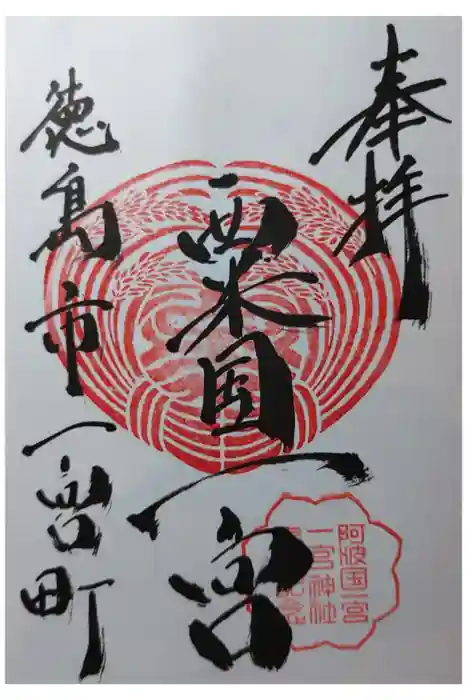 奉拝
粟国一宮
徳島市一宮町
阿波国一宮
一宮神社